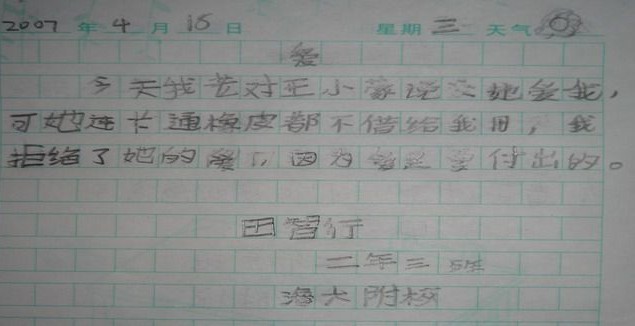 2007 年 4 月 18 日 星期三 天气
爱
今天我对王小蒙说她爱我，
可她连卡通橡皮都不借给我用，我
拒绝了她的爱，因为爱是要付出的。
田智行
二年三班
海大附校